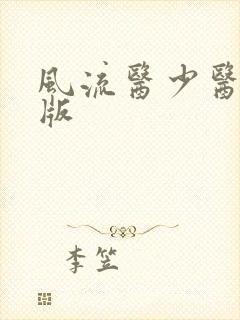 風流醫少醫
版
李笠